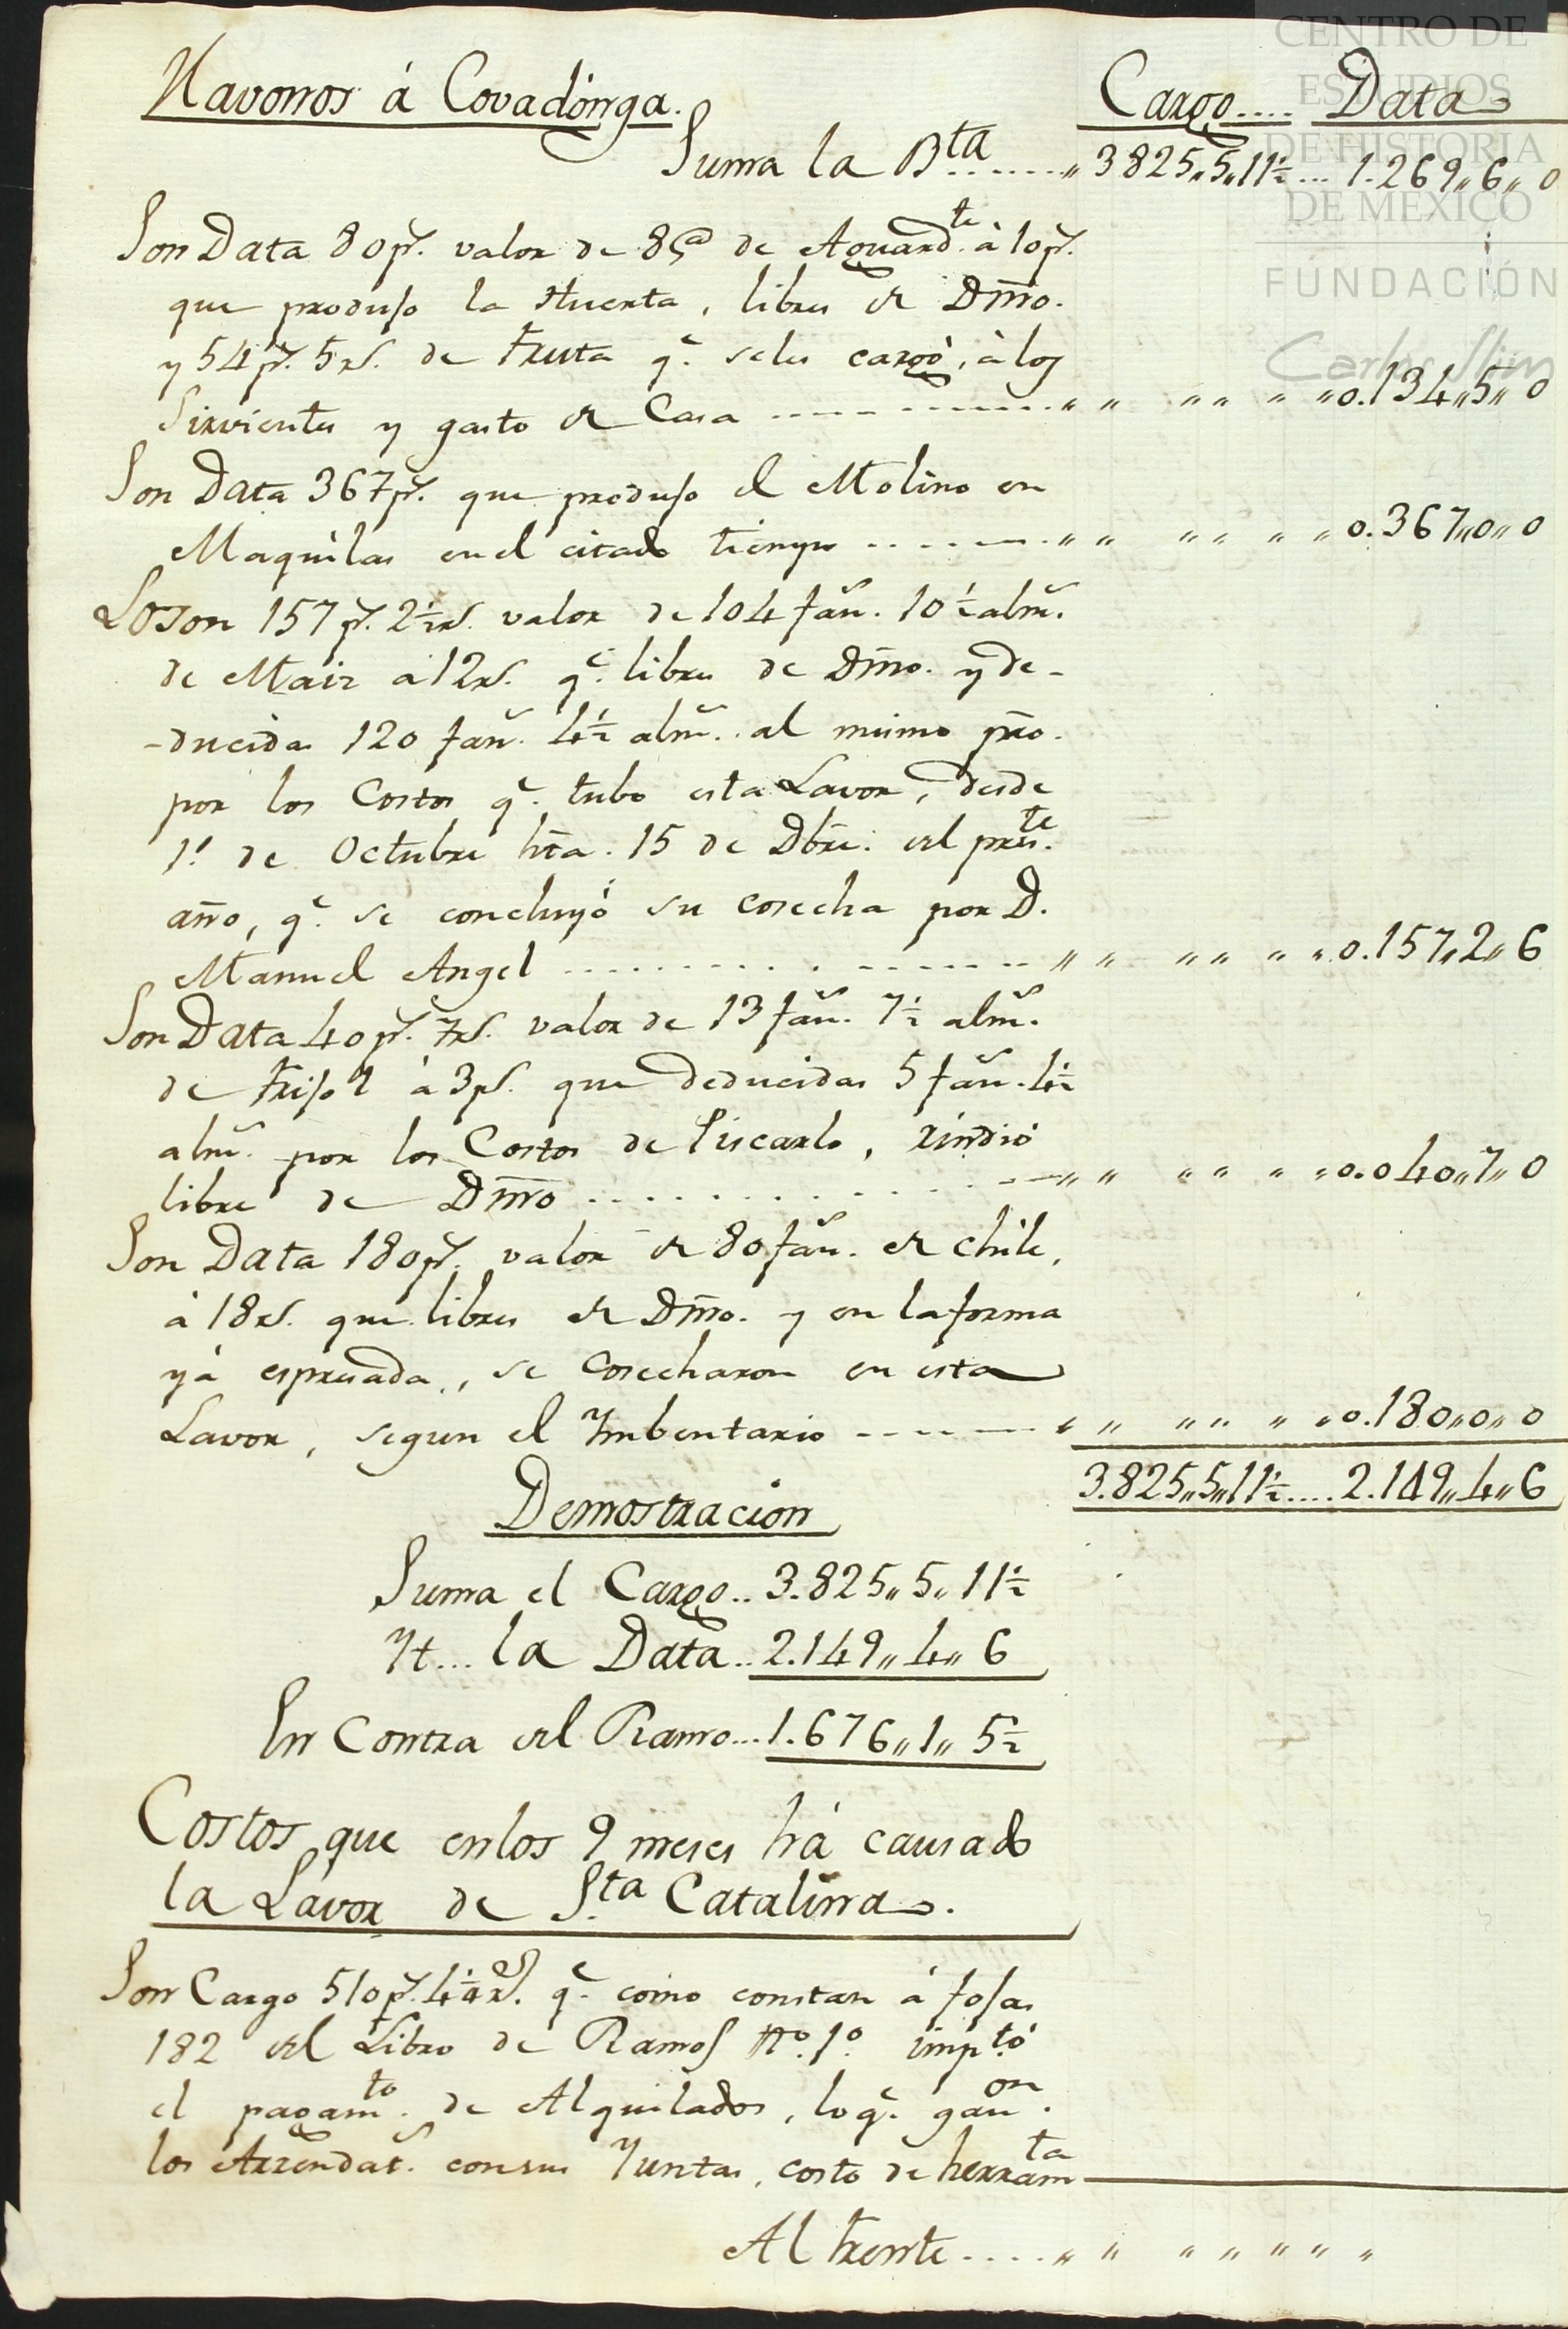 Navorros á Covadonga. Cargo.... Data
Suma la Bta......„ 3825„5„11½... 1.269„6„0
Son Data 80ps. valor de 85@ de Aguardte. á 10ps.
que produjo la Huerta, libres de Dmo.
y 54ps. 5rs. de Fruta qe. seles cargó, á los
Sirvientes y gasto de Casa ------------„ „ „ „ „ „0.134„5„0
Son Data 367ps. que produjo el Molino en
Maquilas en el citado tiempo --------„ „ „ „ „ „0.367„0„0
Loson 157ps. 2½rs. valor de 104 fans. 10½ alms.
de Maiz a 12rs. qe. libres de Dmo. y de-
-ducidas 120 fans. 4½ alms. al mismo prco.
por los Costos qe. tubo esta Lavor, desde
1º. de Octubre hta. 15 de Dbre. del preste.
año, qe. se concluyó su cosecha por D.
Manuel Angel ----------------„ „ „ „ „ „0.157„2„6
Son Data 40ps. 7rs. valor de 13 fans. 7½ alms.
de Frijol á 3ps. que deducidas 5 fans. 4½
alms. por los Costos de Piscarlo, rindió
libre de Dmo ----------------„ „ „ „ „ „0.040„7„0
Son Data 180ps. valor de 80 fans. de chile,
á 18rs. que libres de Dmo. y en la forma
yá espresada, se Cosecharon en esta
Lavor, segun el Ymbentario --------„ „ „ „ „ „0.180„0„0
3.825„5„11½.... 2.149„4„6
Demostracion
Suma el Cargo.. 3.825„5„11½
Yt... la Data.. 2.149„4„6
En Contra del Ramo... 1.676„1„5½
Costos que enlos 9 meses há causado
la Lavor de Sta. Catalina.
Son Cargo 510ps. 4 rs. qe. como constan á fojas
182 del Libro de Ramos No. 1o. imptó
el pagamto. de Alquilados, lo qe. ganon.
los Arrendats. consus Yuntas, costo de herramta
Al frente....„ „ „ „ „ „ „
CENTRO DE
ESTUDIOS
DE HISTORIA
DE MÉXICO
FUNDACIÓN
Carlos Slim